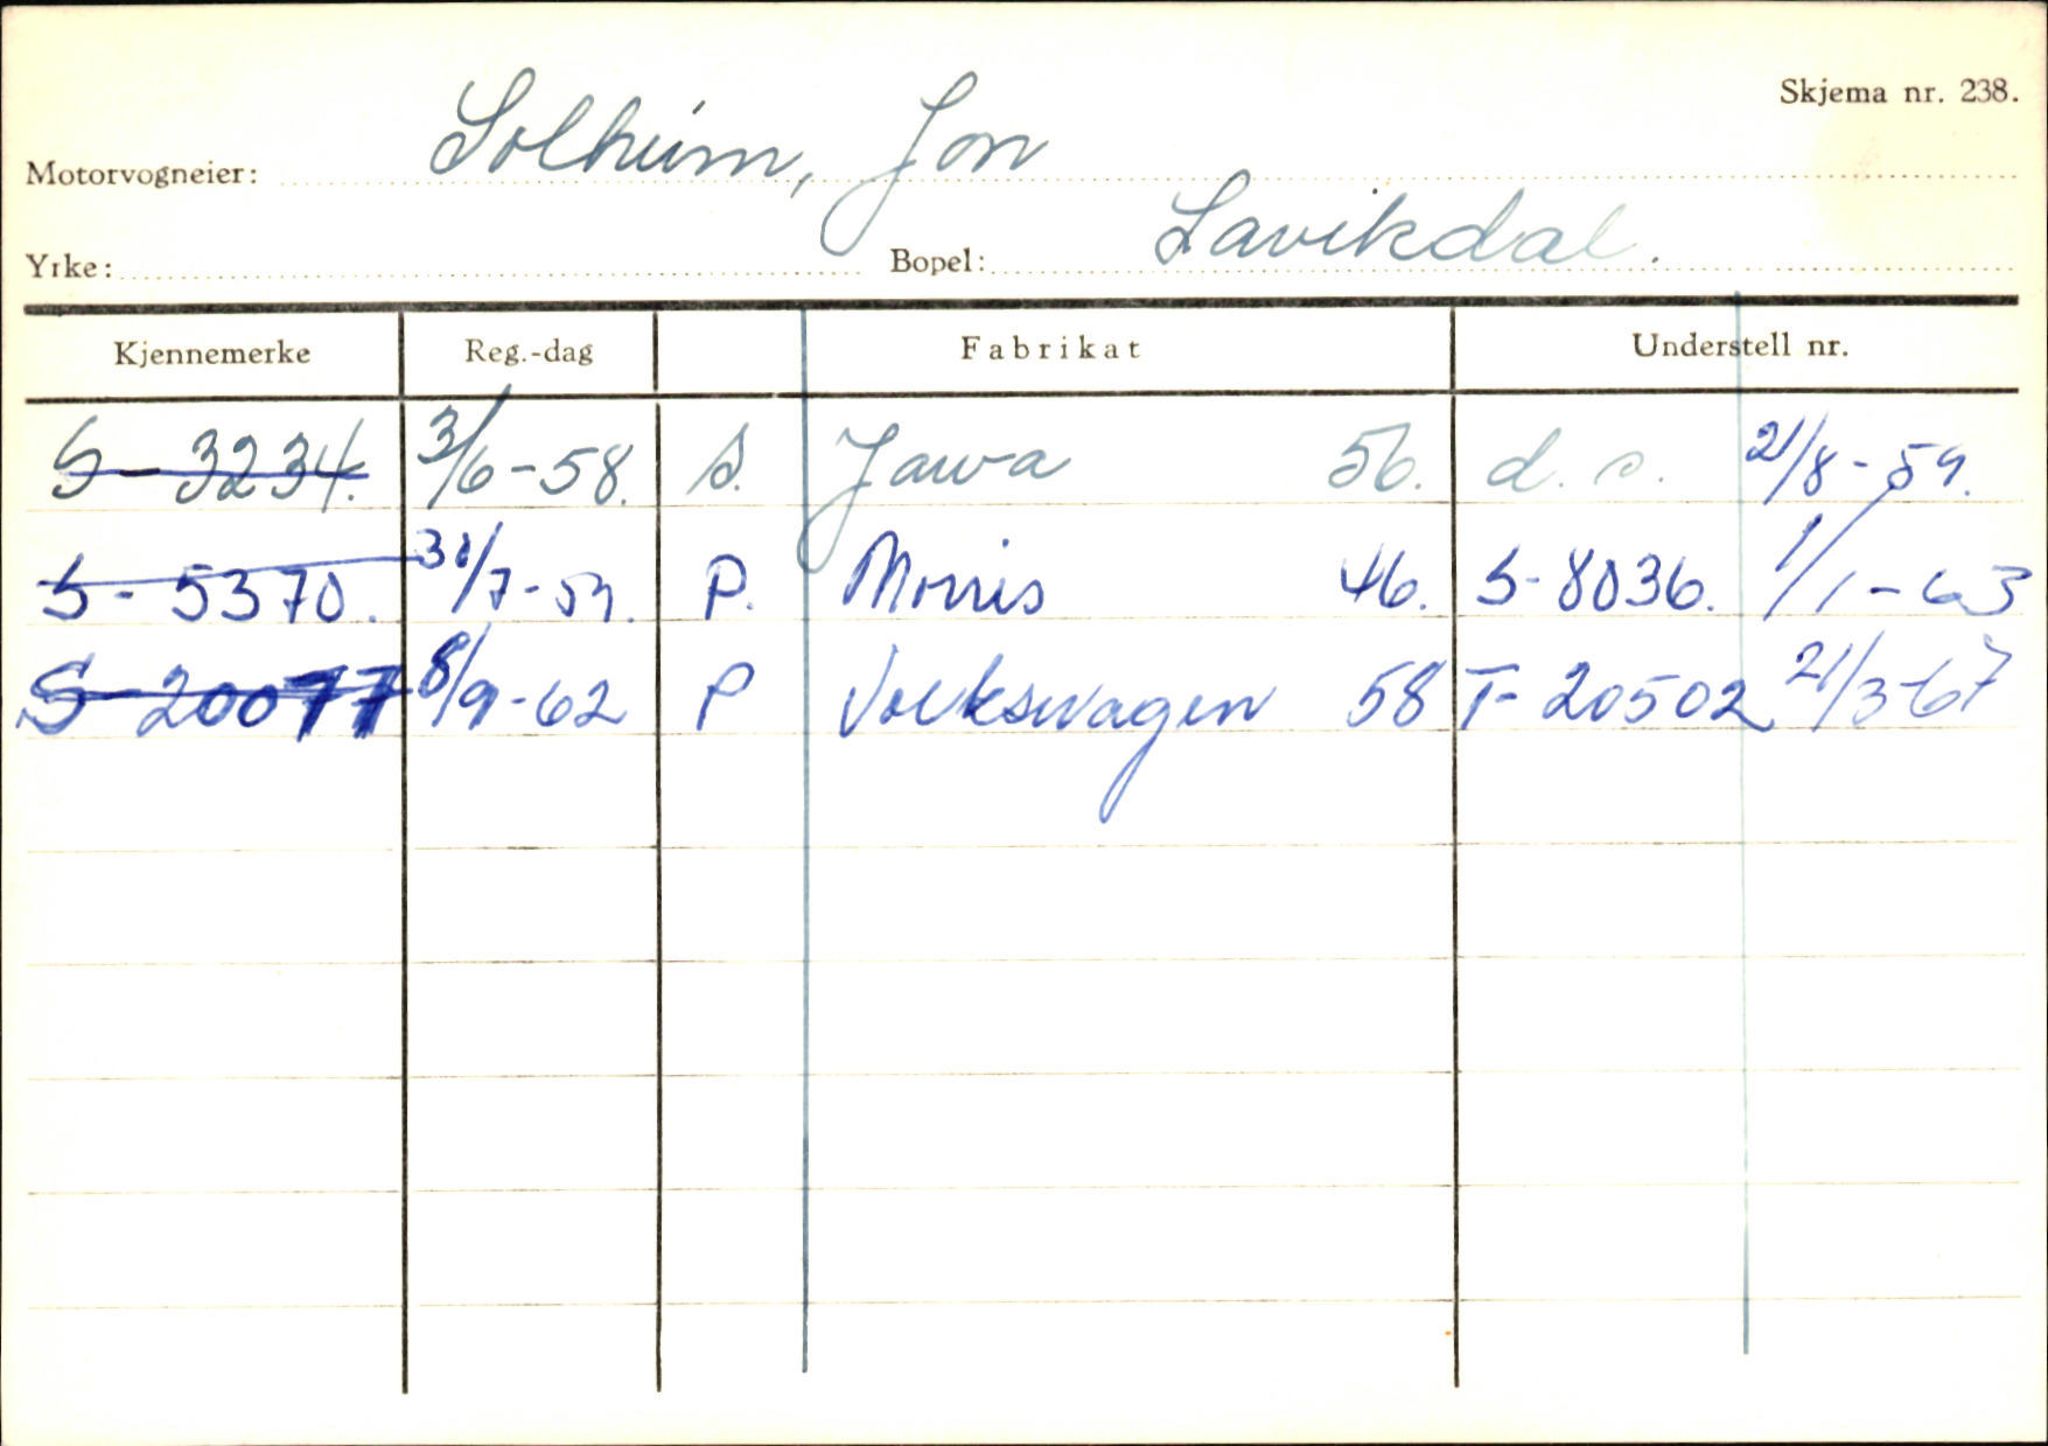 Skjema nr. 238.
Motorvogneier: Solheim, Jon
Yrke: Bopel: Lavikdal.
Kjennemerke Reg.-dag Fabrikat Understell nr.
S-3234. 3/6-58. S. Jawa 56. d. s. 21/8-59.
S-5370. 31/7-59. P. Morris 46. S-8036. 1/1-63
S-20077 8/9-62 P Volkswagen 58 T-20502 21/3-67